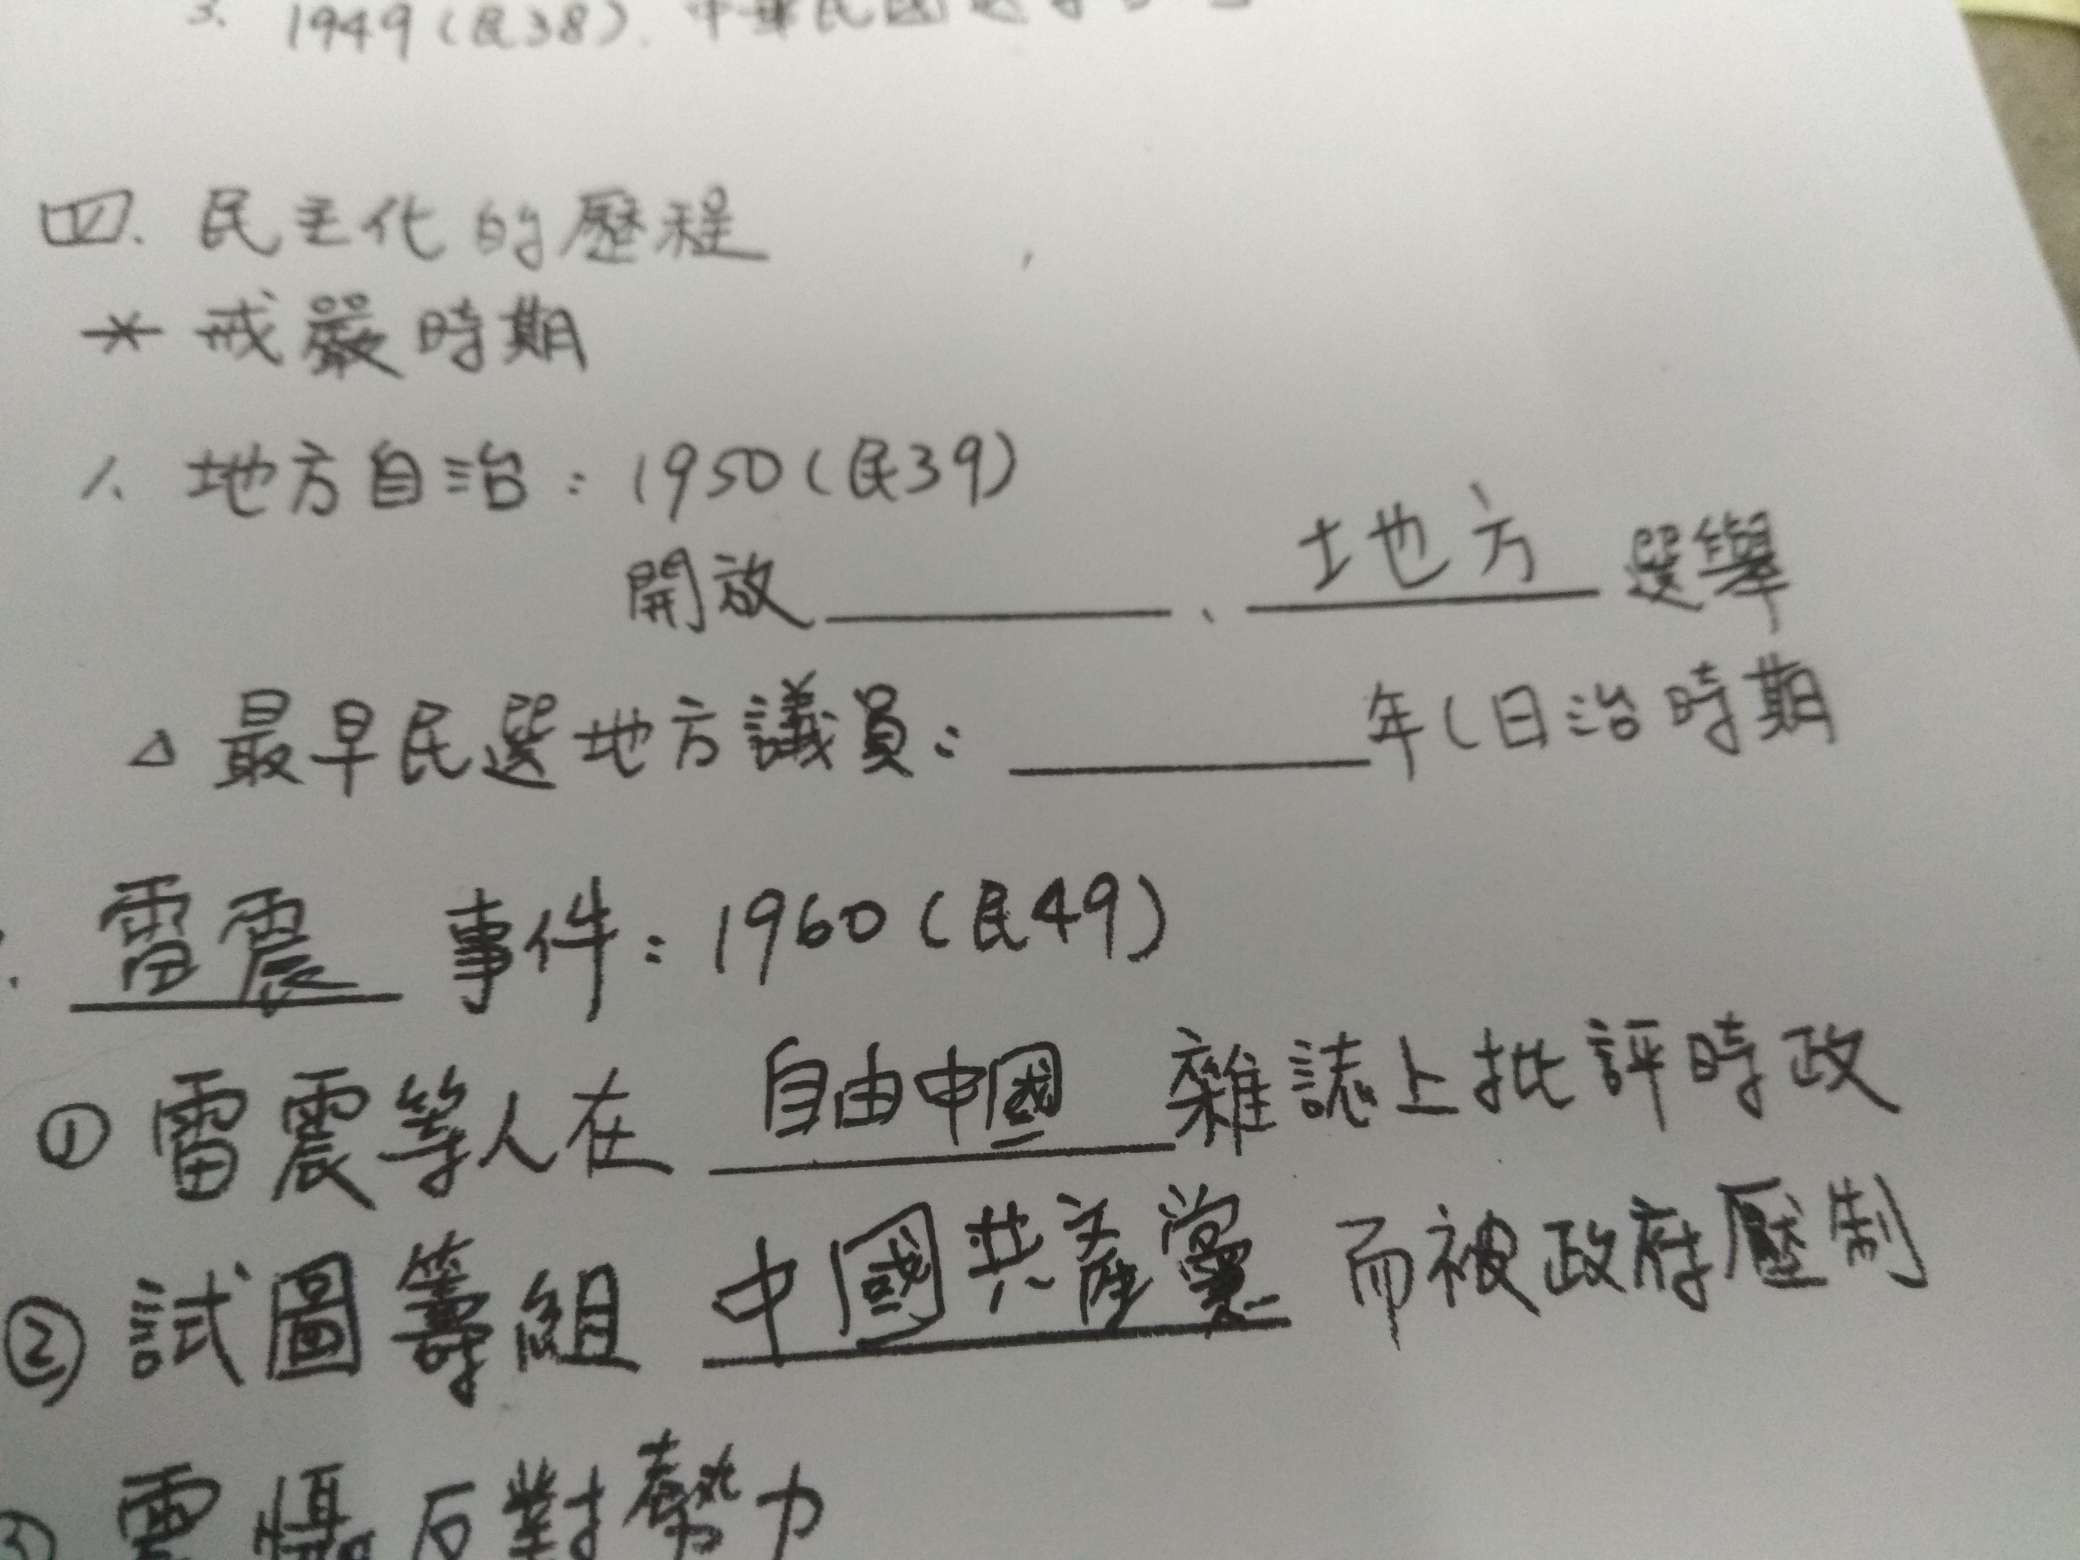 3. 1949(民38). 中華民國
四. 民主化的歷程
* 戒嚴時期
1. 地方自治: 1950(民39)
開放________、地方 選舉
△ 最早民選地方議員: ________年(日治時期
雷震 事件: 1960(民49)
① 雷震等人在 自由中國 雜誌上批評時政
② 試圖籌組 中國共產黨 而被政府壓制
③ 震懾反對勢力